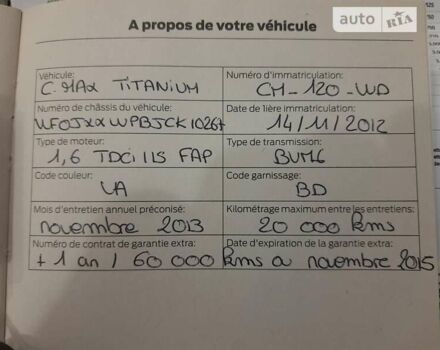 auto RIA
A propos de votre véhicule
Véhicule: Numéro d'immatriculation:
C-MAX TITANIUM CM-120-WD
Numéro de châssis du véhicule: Date de 1ière immatriculation:
WF0JXXWPBJCK10267 14/11/2012
Type de moteur: Type de transmission:
1,6 TDCi 115 FAP BVM6
Code couleur: Code garnissage:
VA BD
Mois d'entretien annuel préconisé: Kilométrage maximum entre les entretiens:
novembre 2013 20 000 kms
Numéro de contrat de garantie extra: Date d'expiration de la garantie extra:
+ 1 an / 60 000 kms a novembre 2015